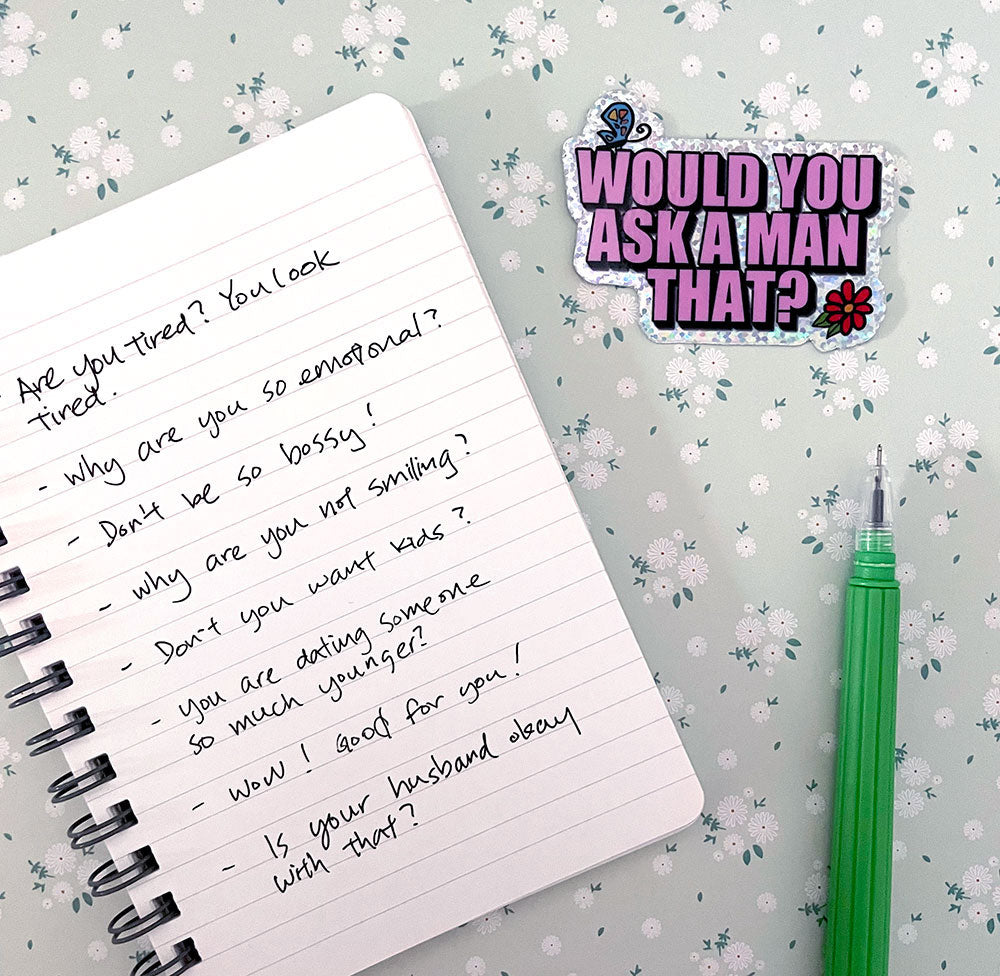 - Are you tired? You look
tired.
- Why are you so emotional?
- Don't be so bossy!
- Why are you not smiling?
- Don't you want kids?
- You are dating someone
so much younger?
- Wow! Good for you!
- Is your husband okay
with that?
WOULD YOU
ASK A MAN
THAT?